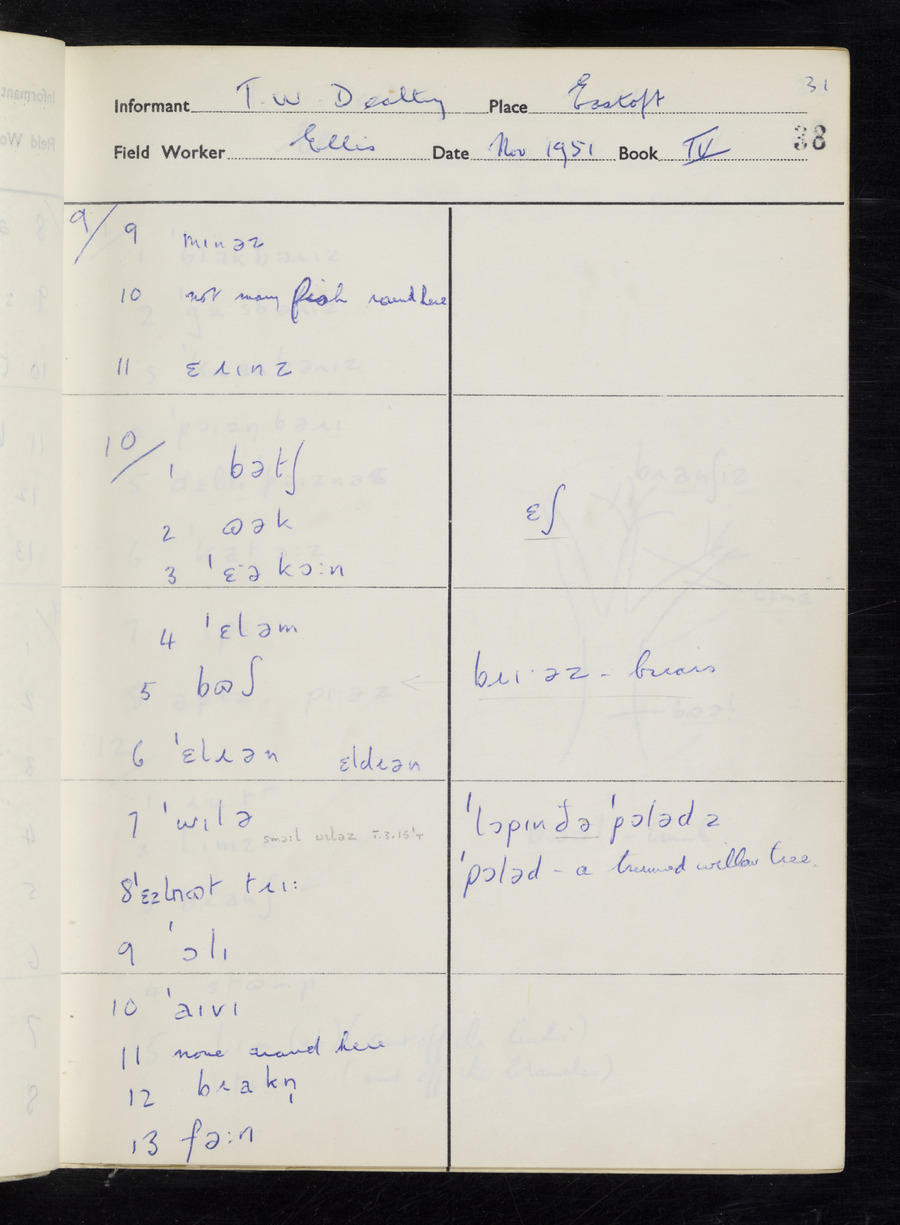 31
Informant T. W Dealtry Place Eastoft
Field Worker Ellis Date Nov 1951 Book IV 38
9/ 9 ˈmɪnəz
10 not many fish round here
11 ɛɹɪnz
10/ 1 bətʃ
2 ɷək
ɛʃ
3 ˈɛːəkɔːn
4 ˈɛləm
5 bɷʃ
bɹɪ·əz - briars
6 ˈɛlɹən ɛldɹən
7 ˈwɪlə
smɔːl wɪləz T.3.15
ˈlɔpɪn ðə ˈpɔlədz
ˈpɔləd - a trimmed willow tree.
8 ˈɛzlnɷt tɹɪː
9 ˈɔlɪ
10 ˈaɪvɪ
11 none around here
12 bɹakn̩
13 fəːn